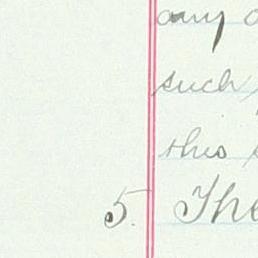 any
such
this
5. The